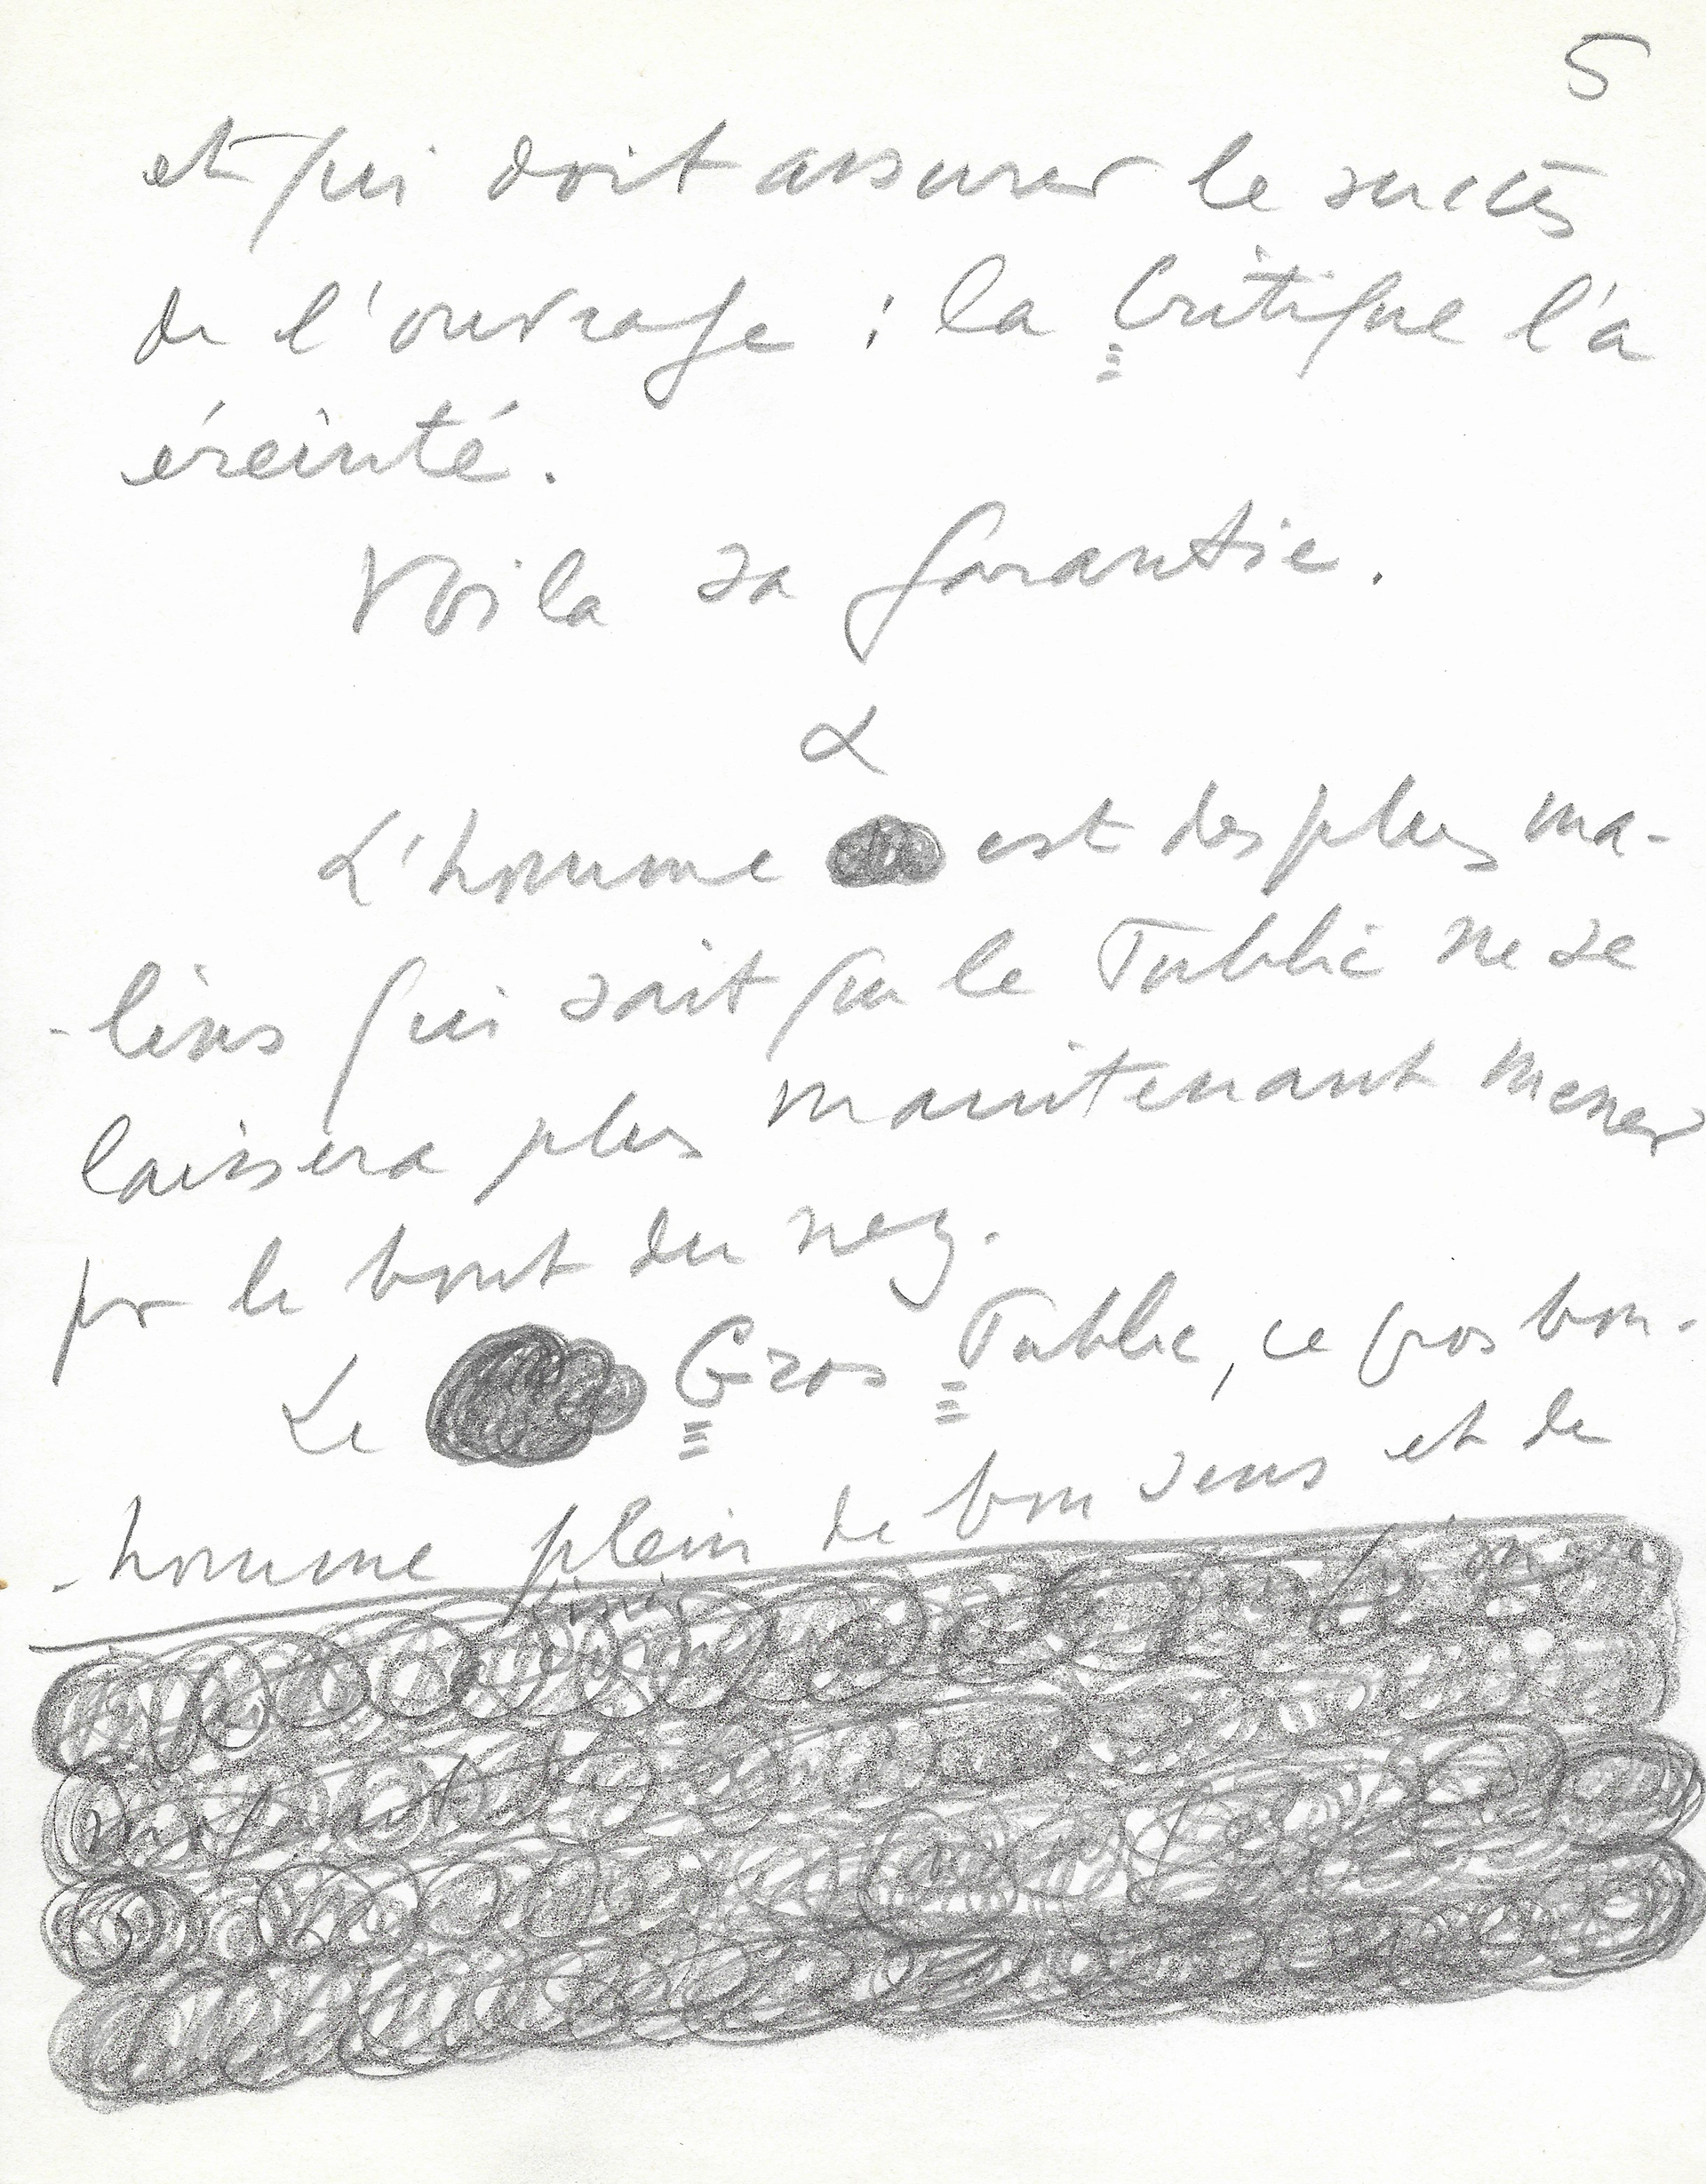 5
et qui doit assurer le succès
de l'ouvrage : la Critique l'a
éreinté.
Voila sa garantie.
α
L'homme est des plus ma-
-lins qui sait que le Public ne se
laissera plus maintenant mener
par le bout du nez.
Le Gros Public, ce gros bon-
-homme plein de bon sens et de